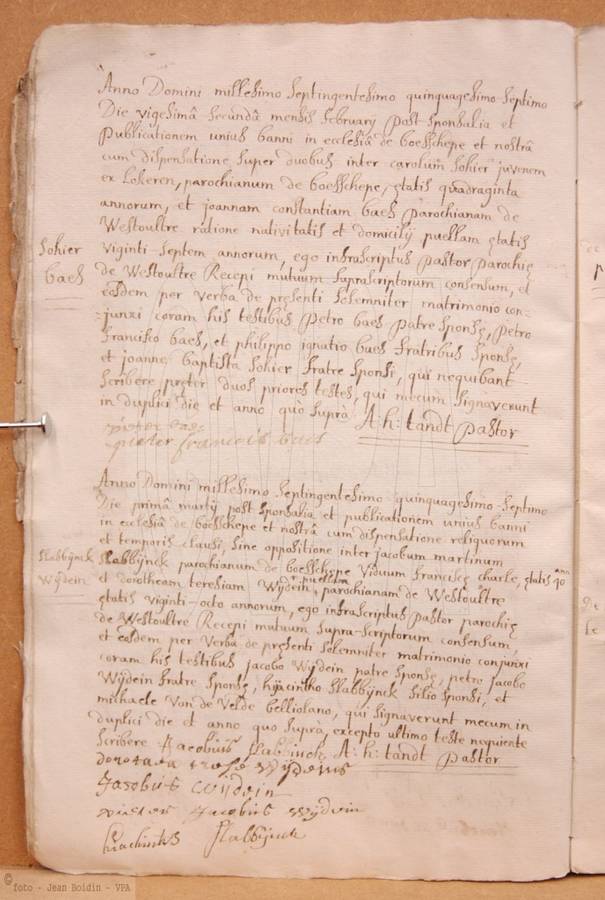 Anno Domini millesimo septingentesimo quinquagesimo septimo
Die vigesimâ secundâ mensis february post sponsalia et
publicationem unius banni in ecclesia de boesschepe et nostrâ
cum dispensatione super duobus inter carolum sohier juvenem
ex Lokeren, parochianum de boesschepe, ętatis quadraginta
annorum, et joannam constantiam baes parochianam de
Westoultre ratione nativitatis et domicilij puellam ętatis
Sohier
baes
viginti-septem annorum, ego infrascriptus pastor parochię
de Westoultre Recepi mutuum suprascriptorum consensum, et
eosdem per verba de pręsenti solemniter matrimonio con=
=junxi coram his testibus petro baes patre sponsę, petro
francisco baes, et philippo ignatio baes fratribus sponsę,
et joanne baptista sohier fratre sponsi, qui nequibant
scribere pręter duos priores testes, qui mecum signaverunt
in duplici die et anno quo suprà A: h: tandt pastor
pieter baes
pieter francois baes
Anno Domini millesimo septingentesimo quinquagesimo-septimo
Die primâ martij post sponsalia et publicationem unius banni
in ecclesiâ de boesschepe et nostrâ cum dispensatione reliquorum
et temporis clausi, sine oppositione inter jacobum martinum
Slabbijnck
Wijdein
slabbijnck parochianum de boesschepe viduum franciscę charle, ętatis 40 ann
et dorotheam teresiam Wijdein, puellam parochianam de Westoultre
ętatis viginti-octo annorum, ego infrascriptus pastor parochię
de Westoultre Recepi mutuum supra-scriptorum consensum,
et eosdem per verba de pręsenti solemniter matrimonio conjunxi
coram his testibus jacobo Wijdein patre sponsę, petro jacobo
Wijdein fratre sponsę, hijacintho slabbijnck filio sponsi, et
michaele Von de Velde belliolano, qui signaverunt mecum in
duplici die et anno quo suprà, excepto ultimo teste nequiente
scribere Jacobus slabbinck A: h: tandt pastor
wijdens
Jacobus wijdein
Jacobus wijdein
slabbijnck
© foto - Jean Boidin - VPA